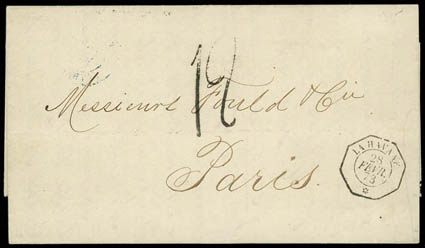 12
Messieurs Fould & Cie
Paris.
LA HAVANE
28
FÉVR.
73